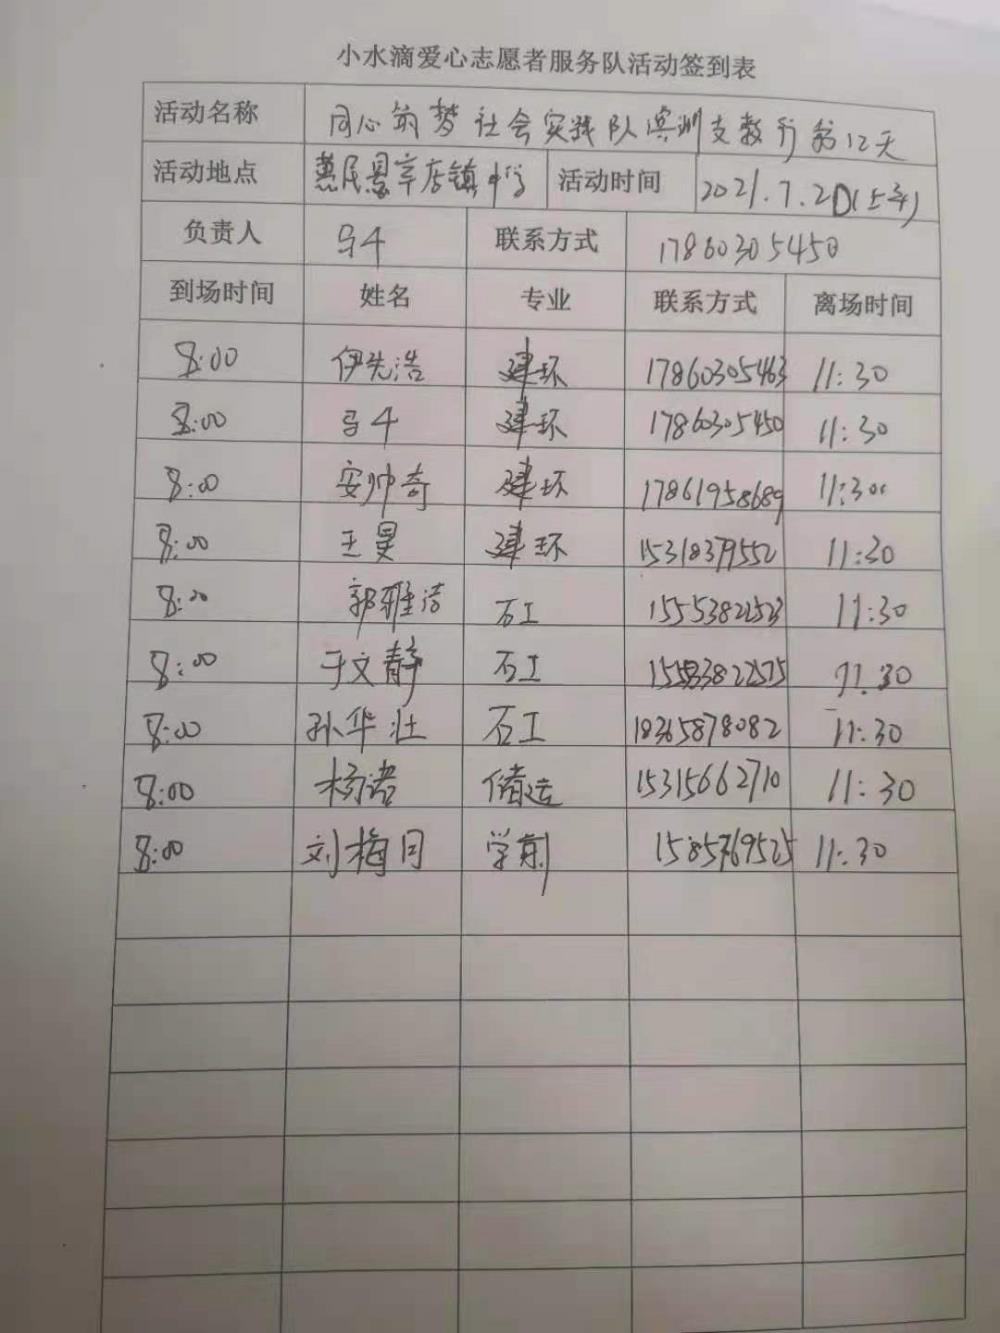 小水滴爱心志愿者服务队活动签到表
活动名称 同心筑梦社会实践队滨州支教行第12天
活动地点 惠民县辛店镇中学 活动时间 2021.7.20(上午)
负责人 马斗 联系方式 17860305450
到场时间 姓名 专业 联系方式 离场时间
8:00 伊先浩 建环 17860305463 11:30
8:00 马斗 建环 17860305450 11:30
8:00 安帅奇 建环 17861958689 11:30
8:00 王昊 建环 15318379552 11:30
8:00 郭雅洁 石工 15553822523 11:30
8:00 于文静 石工 11:30
8:00 孙华壮 石工 18365878082 11:30
8:00 杨诺 储运 15315662710 11:30
8:00 刘梅同 学前 15857769525 11:30